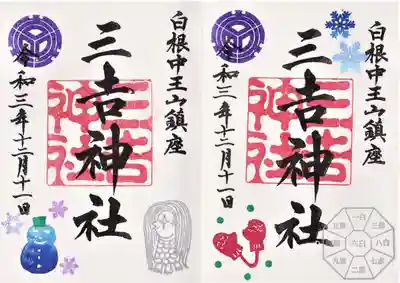 白根中王山鎮座
三吉神社
三吉神社
令和三年十二月十一日
白根中王山鎮座
三吉神社
三吉神社
令和三年十二月十一日
一白
八白
六白
七赤
二黒
九紫